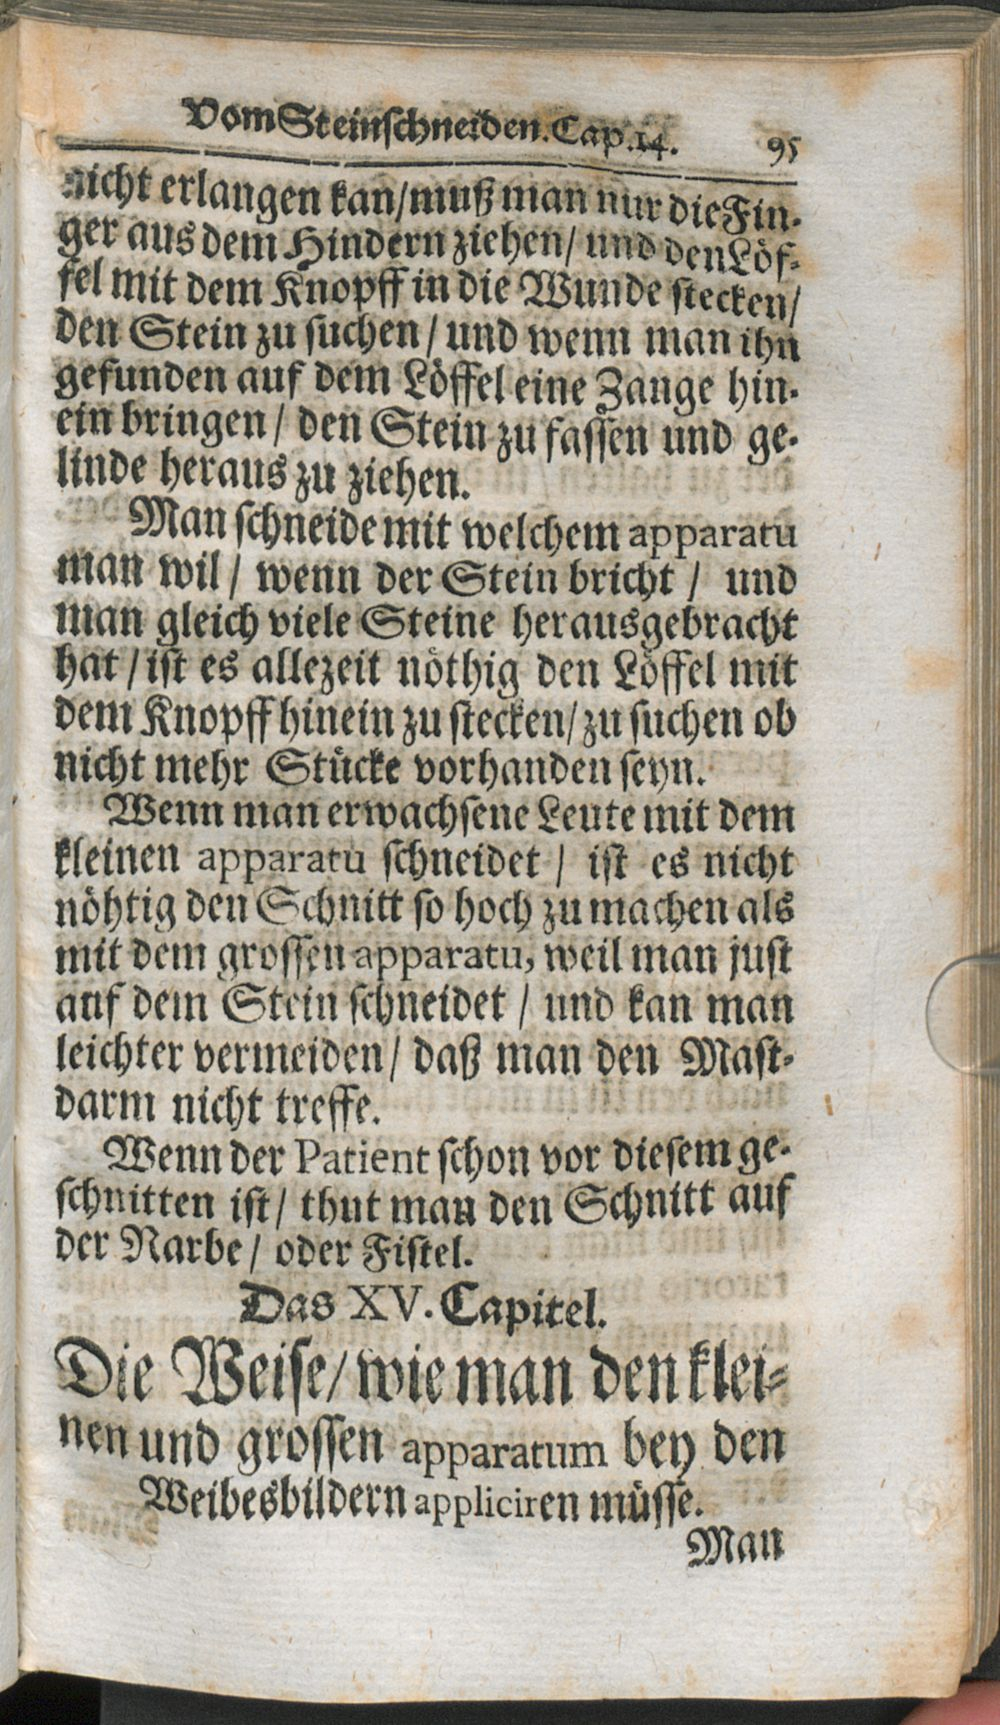 Vom Steinschneiden. Cap. 14. 95
nicht erlangen kan/ muß man nur die Fin-
ger aus dem Hindern ziehen/ und den Löf-
fel mit dem Knopff in die Wunde stecken/
den Stein zu suchen/ und wenn man ihn
gefunden auf dem Löffel eine Zange hin-
ein bringen/ den Stein zu fassen und ge-
linde heraus zu ziehen.
Man schneide mit welchem apparatu
man wil/ wenn der Stein bricht/ und
man gleich viele Steine herausgebracht
hat/ ist es allezeit nöthig den Löffel mit
dem Knopff hinein zu stecken/ zu suchen ob
nicht mehr Stücke vorhanden seyn.
Wenn man erwachsene Leute mit dem
kleinen apparatu schneidet/ ist es nicht
nöhtig den Schnitt so hoch zu machen als
mit dem grossen apparatu, weil man just
auf dem Stein schneidet/ und kan man
leichter vermeiden/ daß man den Mast-
darm nicht treffe.
Wenn der Patient schon vor diesem ge-
schnitten ist/ thut man den Schnitt auf
der Narbe/ oder Fistel.
Das XV. Capitel.
Die Weise/ wie man den klei-
nen und grossen apparatum bey den
Weibesbildern appliciren müsse.
Man